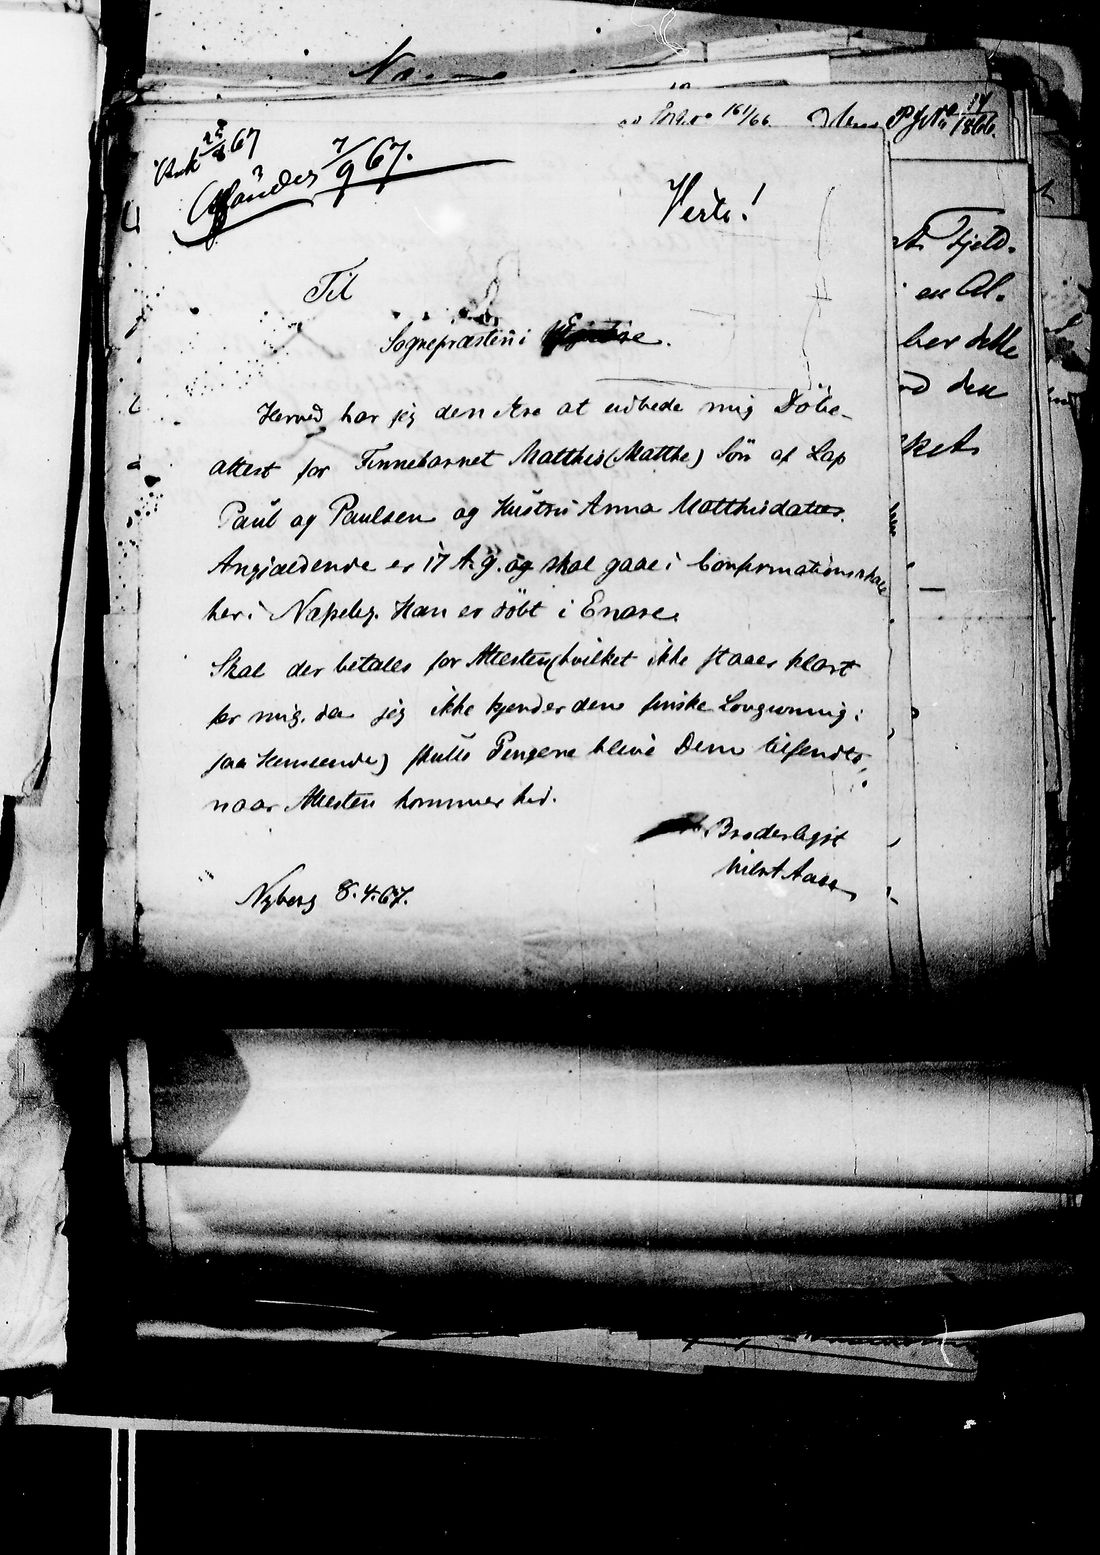 Ank 22/8 67
Afsändes 7/9 67.
Verte!
Til
Sognepræsten i Enare.
Herved har jeg den Ære at udbede mig Döbe-
attest for Finnebarnet Matthis (Matthe) Sön af Lap
Paul og Paulsen og Hustru Anna Matthisdatter.
Angjældende er 17 A. g. og skal gaae i Confirmationsskole
her i Næsseby. Han er döbt i Enare.
Skal der betales for Attesten (hvilket ikke staaer klart
for mig, da jeg ikke kjender den finske Lovgivning i
saa Henseende) skulle Pengene blive Dem tilsendte,
naar Attesten kommer hid.
Broderligst
Nyborg 8.4.67.
161/66
1866.
Fjeld-
en Al-
ber dette
den